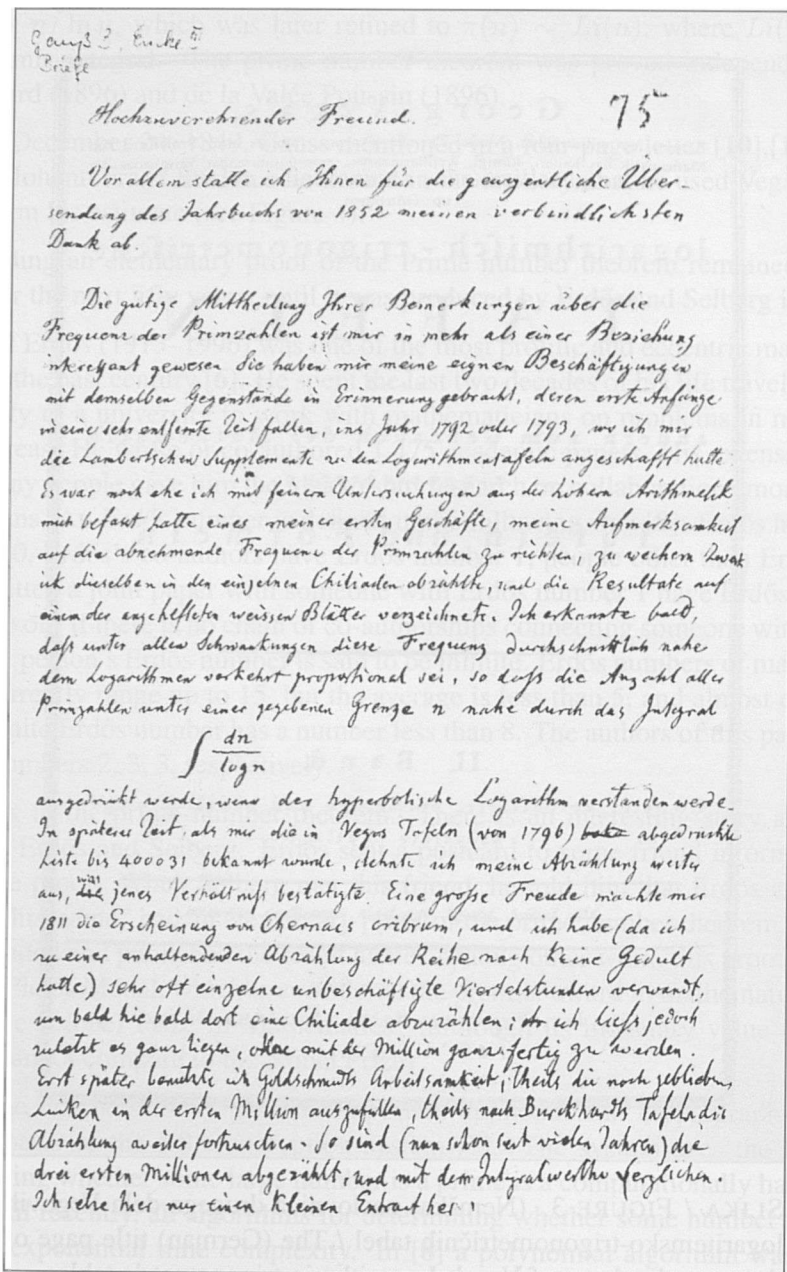 Gauß Encke
Briefe
75
Hochzuverehrender Freund.
Vor allem statte ich Ihnen für die gewogentliche Über-
sendung des Jahrbuchs von 1852 meinen verbindlichsten
Dank ab.
Die gütige Mittheilung Ihrer Bemerkungen über die
Frequenz der Primzahlen ist mir in mehr als einer Beziehung
interessant gewesen Sie haben mir meine eignen Beschäftigungen
mit demselben Gegenstande in Erinnerung gebracht, deren erste Anfänge
in eine sehr entfernte Zeit fallen, ins Jahr 1792 oder 1793, wo ich mir
die Lambertschen Supplemente zu den Logarithmentafeln angeschafft hatte
Es war noch ehe ich mit feinern Untersuchungen aus der höhern Arithmetik
mich befasst hatte eines meiner ersten Geschäfte, meine Aufmerksamkeit
auf die abnehmende Frequenz der Primzahlen zu richten, zu welchem Zweck
ich dieselben in den einzelnen Chiliaden abzählte, und die Resultate auf
einem der angehefteten weissen Blätter verzeichnete. Ich erkannte bald,
daß unter allen Schwankungen diese Frequenz durchschnittlich nahe
dem Logarithmen verkehrt proportional sei, so daß die Anzahl aller
Primzahlen unter einer gegebenen Grenze n nahe durch das Integral
∫ dn/log n
ausgedrückt werde, wenn der hyperbolische Logarithm verstanden werde.
In späterer Zeit, als mir die in Vegas Tafeln (von 1796) abgedruckte
Liste bis 400031 bekannt wurde, dehnte ich meine Abzählung weiter
aus, was jenes Verhältniß bestätigte. Eine große Freude machte mir
1811 die Erscheinung von Chernacs cribrum, und ich habe (da ich
zu einer anhaltendenden Abzählung der Reihe nach keine Gedult
hatte) sehr oft einzelne unbeschäftigte Viertelstunden verwandt,
um bald hie bald dort eine Chiliade abzuzählen; ich liess jedoch
zuletzt es ganz liegen, ohne mit der Million ganz fertig zu werden.
Erst später benutzte ich Goldschmidts Arbeitsamkeit, theils die noch gebliebenen
Lücken in der ersten Million auszufüllen, theils nach Burckhardts Tafeln die
Abzählung weiter fortzusetzen. So sind (nun schon seit vielen Jahren) die
drei ersten Millionen abgezählt, und mit dem Integralwerthe verglichen.
Ich setze hier nur einen kleinen Extract her: